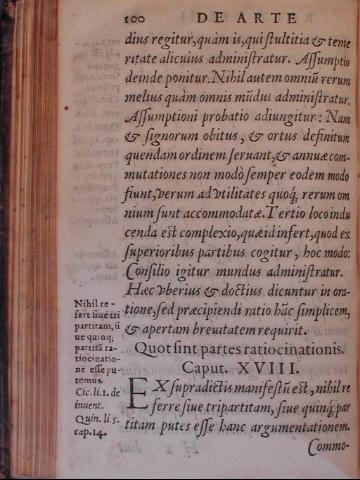 100 DE ARTE
dius regitur, quàm is, qui stultitia & teme
ritate alicuius administratur. Assumptio
deinde ponitur. Nihil autem omniũ rerum
melius quàm omnis mũdus administratur.
Assumptioni probatio adiungitur: Nam
& signorum obitus, & ortus definitum
quendam ordinem seruant, & annuæ com-
mutationes non modò semper eodem modo
fiunt, verum ad vtilitates quoq; rerum om
nium sunt accommodatæ. Tertio loco indu
cenda est complexio, quæ id infert, quod ex
superioribus partibus cogitur, hoc modo:
Consilio igitur mundus administratur.
Hæc vberius & doctius dicuntur in ora-
tione, sed præcipiendi ratio hãc simplicem,
& apertam breuitatem requirit.
Quot sint partes ratiocinationis.
Caput. XVIII.
EX supradictis manifestũ est, nihil re
ferre siue tripartitam, siue quinq; par
titam putes esse hanc argumentationem.
Commo-
Nihil re-
fert siue tri
partitam, si
ue quinq;
partitã ra-
tiocinatio-
ne esse pu-
temus.
Cic. li. 1. de
inuent.
Quin. li 5.
cap. 14.